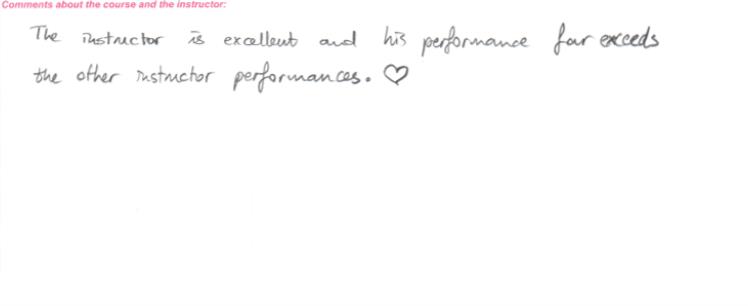 Comments about the course and the instructor:
The instructor is excellent and his performance far exceeds
the other instructor performances. ♡